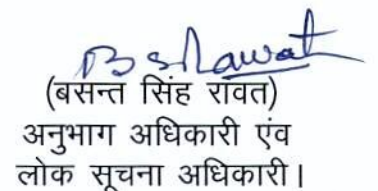 B S Rawat
(बसन्त सिंह रावत)
अनुभाग अधिकारी एंव
लोक सूचना अधिकारी।